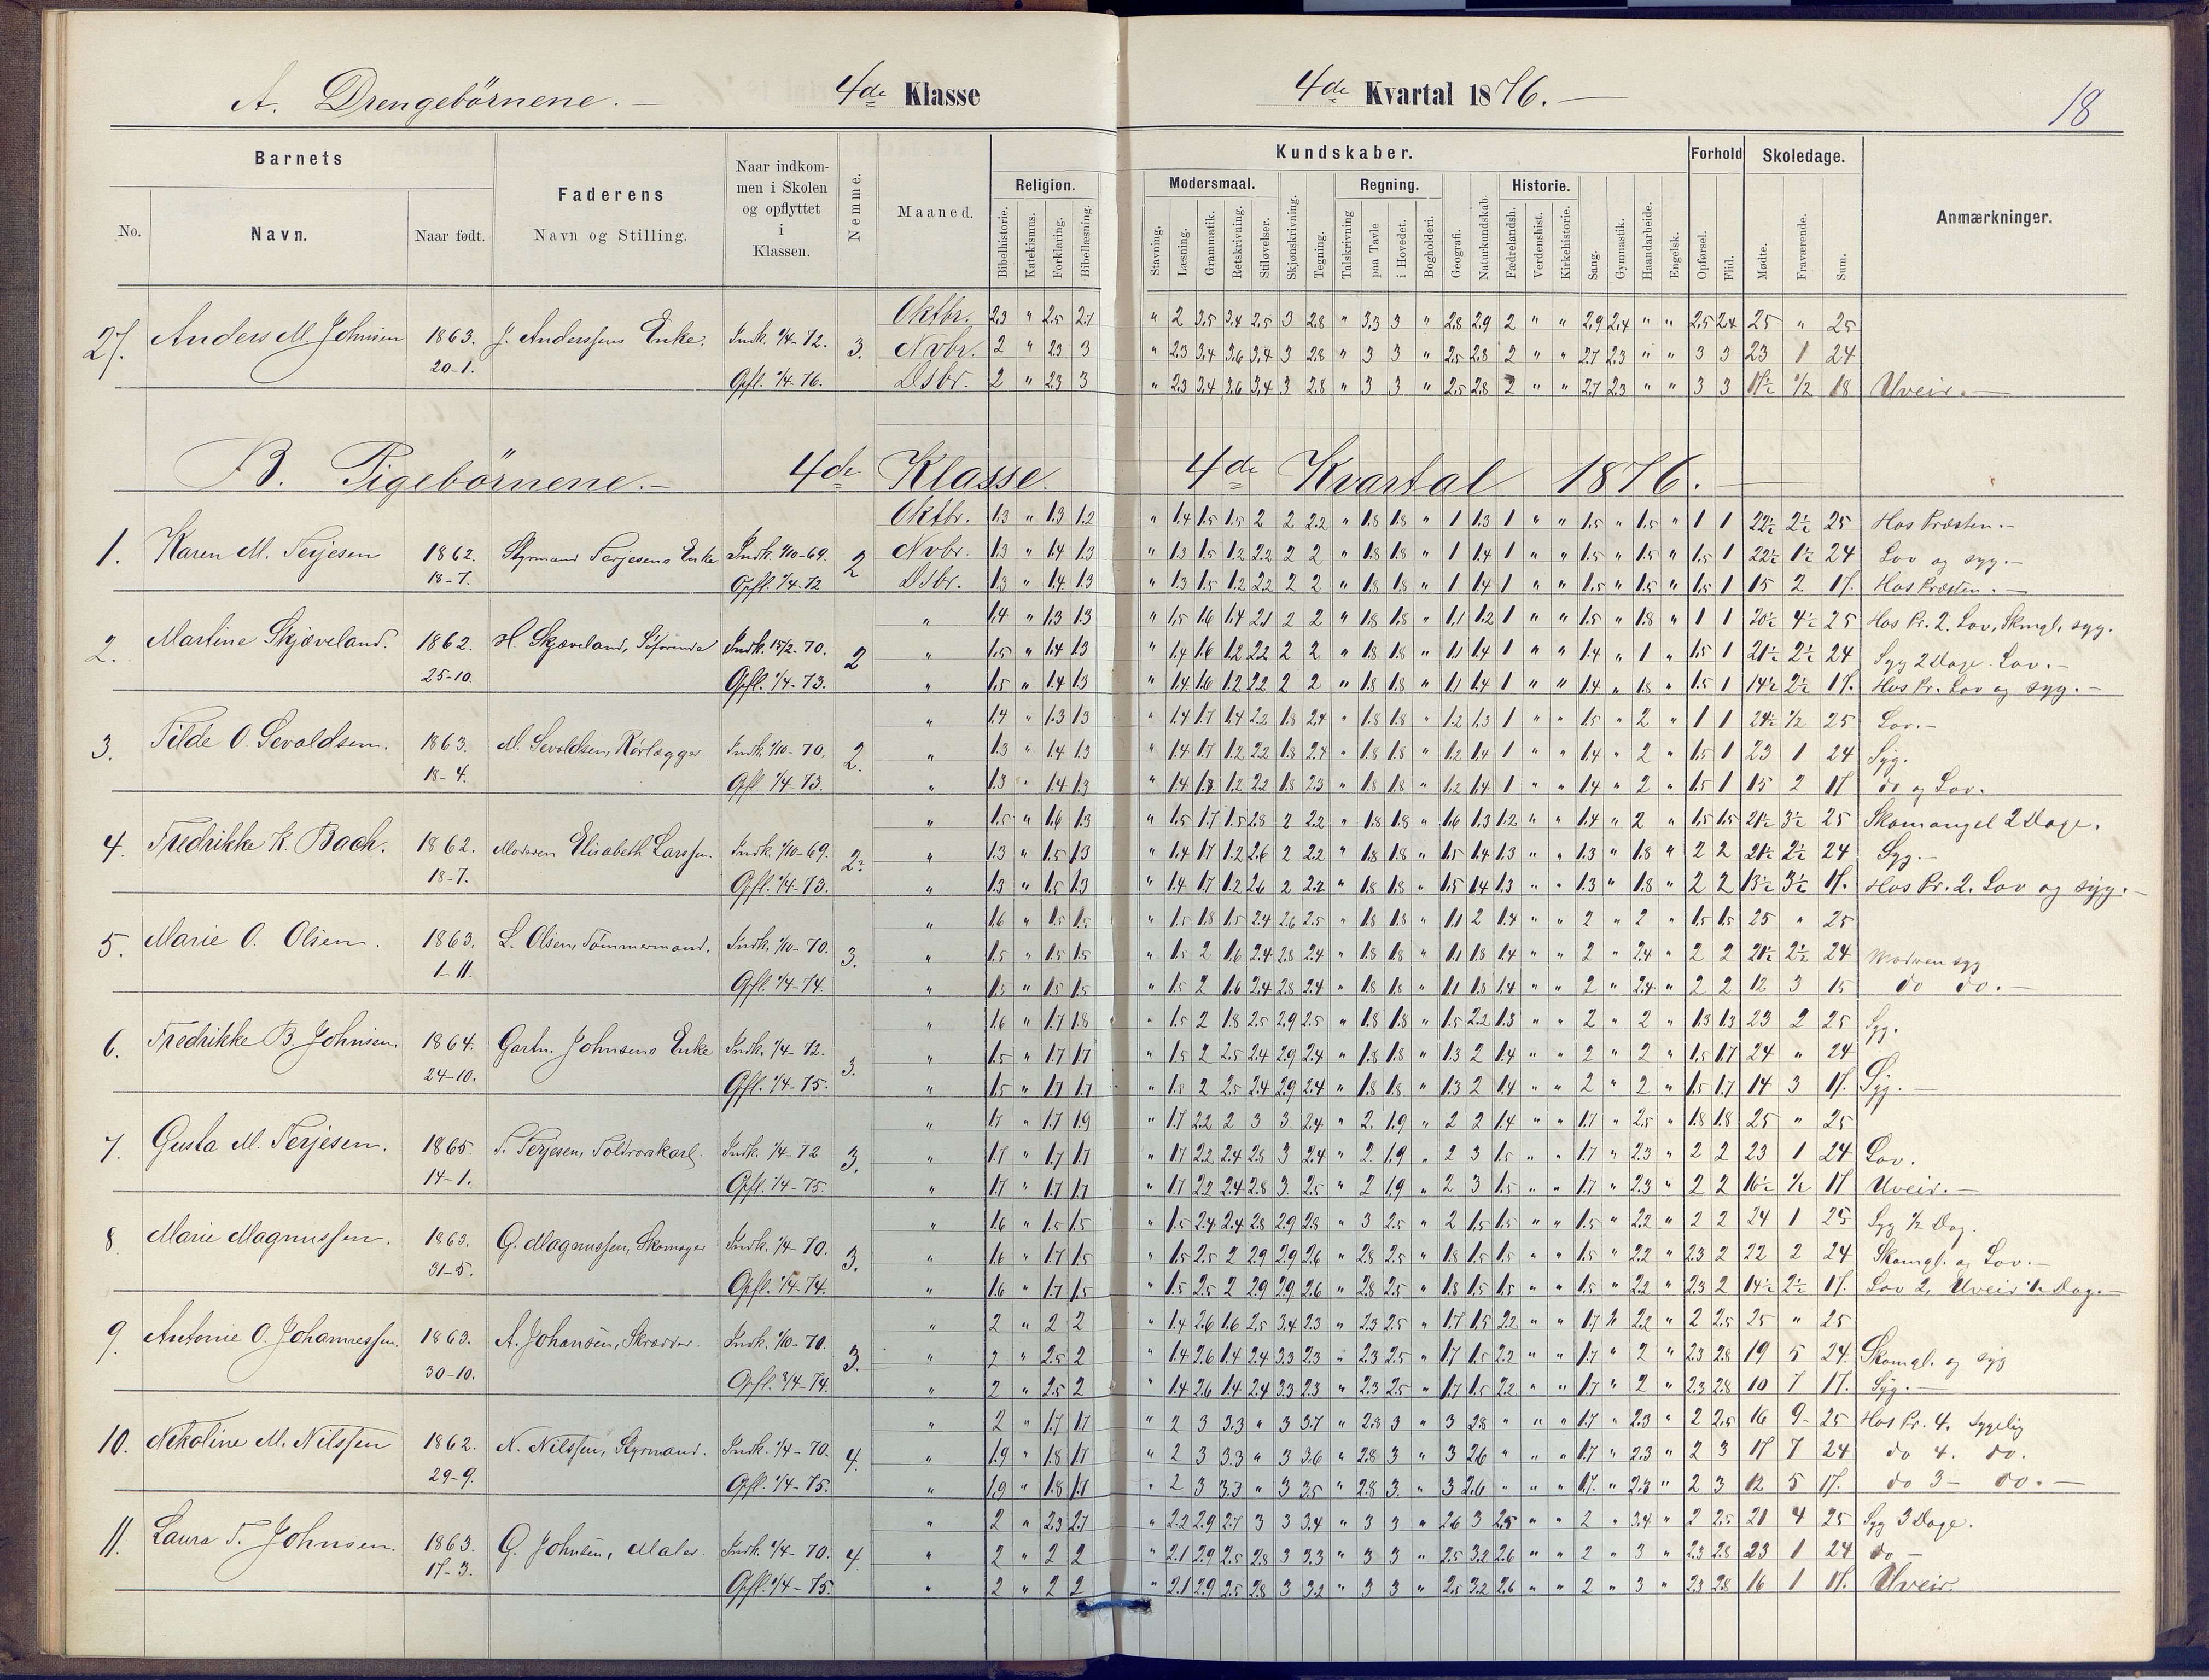 A. Drengebörnene. — 4de Klasse 4de Kvartal 1876. — 18
Barnets
No. Navn. Naar født.
Faderens Navn og Stilling.
Naar indkommen i Skolen og opflyttet i Klassen.
Nemme.
Maaned.
Kundskaber.
Religion. Bibelhistorie. Katekismus. Forklaring. Bibellæsning.
Modersmaal. Stavning. Læsning. Grammatik. Retskrivning. Stiløvelser.
Skjønskrivning. Tegning.
Regning. Talskrivning paa Tavle i Hovedet. Bogholderi.
Geografi. Naturkundskab.
Historie. Fædrelandsh. Verdenshist. Kirkehistorie.
Sang. Gymnastik. Haandarbeide. Engelsk.
Forhold Opførsel. Flid.
Skoledage. Mødte. Fraværende. Sum.
Anmærkninger.
27. Anders M. Johnsen 1863. 20-1. J. Anderssens Enke. Indk. 1/4-72. Opfl. 1/4-76. 3.
Oktbr. 2.3 " 2.5 2.7 " 2 3.5 3.4 2.5 3 2.8 " 3.3 3 " 2.8 2.9 2 " " 2.9 2.4 " " 2.5 2.4 25 " 25
Nvbr. 2 " 2.3 3 " 2.3 3.4 3.6 3.4 3 2.8 " 3 3 " 2.5 2.8 2 " " 2.7 2.3 " " 3 3 23 1 24
Dsbr. 2 " 2.3 3 " 2.3 3.4 3.6 3.4 3 2.8 " 3 3 " 2.5 2.8 2 " " 2.7 2.3 " " 3 3 17½ ½ 18 Uveir. —
B. Pigebörnene. — 4de Klasse. 4de Kvartal 1876. —
1. Karen M. Terjesen 1862. 18-7. Styrmand Terjesens Enke Indk. 1/10-69. Opfl. 1/4-72 2
Oktbr. 1.3 " 1.3 1.2 " 1.4 1.5 1.5 2 2 2.2 " 1.8 1.8 " 1 1.3 1 " " 1.5 " 1.5 " 1 1 22½ 2½ 25 Hos Præsten. —
Nvbr. 1.3 " 1.4 1.3 " 1.3 1.5 1.2 2.2 2 2 " 1.8 1.8 " 1 1.4 1 " " 1.5 " 1.5 " 1.5 1 22½ 1½ 24 Lov og syg. —
Dsbr. 1.3 " 1.4 1.3 " 1.3 1.5 1.2 2.2 2 2 " 1.8 1.8 " 1 1.4 1 " " 1.5 " 1.5 " 1.5 1 15 2 17. Hos Præsten. —
2. Martine Skjæveland. 1862. 25-10. H. Skjæveland, Söforende Indk. 15/2-70. Opfl. 1/4-73. 2
" 1.4 " 1.3 1.3 " 1.5 1.6 1.4 2.1 2 2 " 1.8 1.8 " 1.1 1.2 1 " " 1.5 " 1.8 " 1 1 20½ 4½ 25 Hos Pr. 2. Lov, Skmgl, syg.
" 1.5 " 1.4 1.3 " 1.4 1.6 1.2 2.2 2 2 " 1.8 1.8 " 1.1 1.4 1 " " 1.4 " 1 " 1.5 1 21½ 2½ 24 Syg 2 Dage. Lov. —
" 1.5 " 1.4 1.3 " 1.4 1.6 1.2 2.2 2 2 " 1.8 1.8 " 1.1 1.4 1 " " 1.4 " 1.8 " 1.5 1 14½ 2½ 17. Hos Pr. Lov og syg. —
3. Tilde O. Sevaldsen. 1863. 18-4. M. Sevaldsen, Rörlægger Indk. 1/10-70. Opfl. 1/4-73. 2.
" 1.4 " 1.3 1.3 " 1.4 1.7 1.4 2.2 1.8 2.4 " 1.8 1.8 " 1.2 1.3 1 " " 1.5 " 2 " 1 1 24½ ½ 25 Lov. —
" 1.3 " 1.4 1.3 " 1.4 1.7 1.2 2.2 1.8 2.4 " 1.8 1.8 " 1.2 1.4 1 " " 1.4 " 2 " 1.5 1 23 1 24 Syg.
" 1.3 " 1.4 1.3 " 1.4 1.8 1.2 2.2 1.8 2.3 " 1.8 1.8 " 1.2 1.4 1 " " 1.4 " 2 " 1.5 1 15 2 17 do og Lov.
4. Fredrikke K. Bach. 1862. 18-7. Moderen Elisabeth Larssen. Indk. 1/10-69. Opfl. 1/4-73. 2.
" 1.5 " 1.6 1.3 " 1.5 1.7 1.5 2.8 2 2.2 " 1.8 1.8 " 1.6 1.3 1.2 " " 1.4 " 2 " 1.5 1.5 21½ 3½ 25 Skomangel 2 Dage.
" 1.3 " 1.5 1.3 " 1.4 1.7 1.2 2.6 2 2.2 " 1.8 1.8 " 1.5 1.4 1.3 " " 1.3 " 1.8 " 2 2 21½ 2½ 24 Syg. —
" 1.3 " 1.5 1.3 " 1.4 1.7 1.2 2.6 2 2.2 " 1.8 1.8 " 1.5 1.4 1.3 " " 1.3 " 1.8 " 2 2 13½ 3½ 17. Hos Pr. 2. Lov og syg. —
5. Marie O. Olsen. 1863. 1-11. L. Olsen, Tömmermand. Indk. 1/10-70. Opfl. 1/4-74. 3.
" 1.6 " 1.5 1.5 " 1.5 1.8 1.5 2.4 2.6 2.5 " 1.8 1.8 " 1.1 2 1.4 " " 2 " 2 " 1.5 1.5 25 " 25
" 1.5 " 1.5 1.5 " 1.5 2 1.6 2.4 2.8 2.4 " 1.8 1.8 " 1.1 1.8 1.4 " " 2 " 2.4 " 2 2 21½ 2½ 24 Modren syg
" 1.5 " 1.5 1.5 " 1.5 2 1.6 2.4 2.8 2.4 " 1.8 1.8 " 1.1 1.8 1.4 " " 2 " 2.4 " 2 2 12 3 15 do do. —
6. Fredrikke B. Johnsen. 1864. 24-10. Gartn. Johnsens Enke Indk. 1/4-72. Opfl. 1/4-75. 3.
" 1.6 " 1.7 1.8 " 1.5 2 1.8 2.5 2.9 2.5 " 1.8 1.8 " 1.5 2.2 1.3 " " 2 " 2 " 1.3 1.3 23 2 25 Syg.
" 1.5 " 1.7 1.7 " 1.5 2 2.5 2.4 2.9 2.4 " 1.8 1.8 " 1.3 2 1.4 " " 2 " 2 " 1.5 1.7 24 " 24
" 1.5 " 1.7 1.7 " 1.5 2 2.5 2.4 2.9 2.4 " 1.8 1.8 " 1.3 2 1.4 " " 2 " 2 " 1.5 1.7 14 3 17. Syg. —
7. Gusta M. Terjesen. 1865. 14-1. T. Terjesen, Toldrorskarl. Indk. 1/4-72 Opfl. 1/4-75. 3.
" 1.7 " 1.7 1.9 " 1.7 2.2 2 3 3 2.4 " 2. 1.9 " 2 2 1.4 " " 1.7 " 2.5 " 1.8 1.8 25 " 25
" 1.7 " 1.7 1.7 " 1.7 2.2 2.4 2.8 3 2.4 " 2. 1.9 " 2 3 1.5 " " 1.7 " 2.3 " 2 2 23 1 24 Lov.
" 1.7 " 1.7 1.7 " 1.7 2.2 2.4 2.8 3. 2.5 " 2 1.9 " 2 3 1.5 " " 1.7 " 2.3 " 2 2 16½ ½ 17 Uveir. —
8. Marie Magnussen. 1863. 31-5. G. Magnussen, Skomager Indk. 1/4-70. Opfl. 1/4-74. 3.
" 1.6 " 1.5 1.5 " 1.5 2.4 2.4 2.8 2.9 2.8 " 3 2.5 " 2 1.5 1.5 " " 1.5 " 2.2 " 2 2 24 1 25 Syg ½ Dag.
" 1.6 " 1.7 1.5 " 1.5 2.5 2 2.9 2.9 2.6 " 2.8 2.5 " 1.8 1.5 1.5 " " 1.5 " 2.2 " 2.3 2 22 2 24 Skomgl. og Lov. —
" 1.6 " 1.7 1.5 " 1.5 2.5 2 2.9 2.9 2.6 " 2.8 2.5 " 1.8 1.5 1.5 " " 1.5 " 2.2 " 2.3 2 14½ 2½ 17. Lov 2, Uveir ½ Dag. —
9. Antonie O. Johannessen. 1863. 30-10. A. Johansen, Skrædder. Indk. 1/10-70. Opfl. 3/4-74. 3.
" 2 " 2 2 " 1.4 2.6 1.6 2.5 3.4 2.3 " 2.3 2.5 " 1.7 1.5 2.2 " " 1.7 " 2.2 " 2 2.5 25 " 25
" 2 " 2.5 2 " 1.4 2.6 1.4 2.4 3.3 2.3 " 2.3 2.5 " 1.7 1.5 2.2 " " 1.7 " 2 " 2.3 2.8 19 5 24. Skomgl. og syg
" 2 " 2.5 2 " 1.4 2.6 1.4 2.4 3.3 2.3 " 2.3 2.5 " 1.7 1.5 2.2 " " 1.7 " 2 " 2.3 2.8 10 7 17. Syg. —
10. Nikoline M. Nilssen 1862. 29-9. N. Nilssen, Styrmand. Indk. 1/4-70. Opfl. 1/4-75. 4.
" 2 " 1.7 1.7 " 2 3 3.3 " 3 3.7 " 2.8 3 " 3 2.8 " " " 1.7 " 2.3 " 2 2.5 16 9 25 Hos Pr. 4. Sygelig
" 1.9 " 1.8 1.7 " 2 3 3.3 " 3 3.6 " 2.8 3 " 3 2.6 " " " 1.7 " 2.3 " 2 3 17 7 24 do 4. do.
" 1.9 " 1.8 1.7 " 2 3 3.3 " 3 3.5 " 2.8 3. " 3 2.6 " " " 1.7. " 2.3 " 2 3 12 5 17. do 3 - do. —
11. Laura T. Johnsen. 1863. 17-3. G. Johnsen, Maler. Indk. 1/4-70. Opfl. 1/4-75. 4.
" 2 " 2.3 2.7 " 2.2 2.9 2.7 3 3 3.4 " 3 3 " 2.6 3 2.5 " " 2 " 3.4 " 2 2.5 21 4 25 Syg 3 Dage.
" 2 " 2 2 " 2.1 2.9 2.5 2.8 3 3.3 " 3 3 " 2.5 3.2 2.6 " " 2 " 3 " 2.3 2.8 23 1 24 do —
" 2 " 2 2 " 2.1 2.9 2.5 2.8 3 3.2 " 3 3 " 2.5 3.2 2.6 " " 2 " 3 " 2.3 2.8 16 1 17. Uveir.